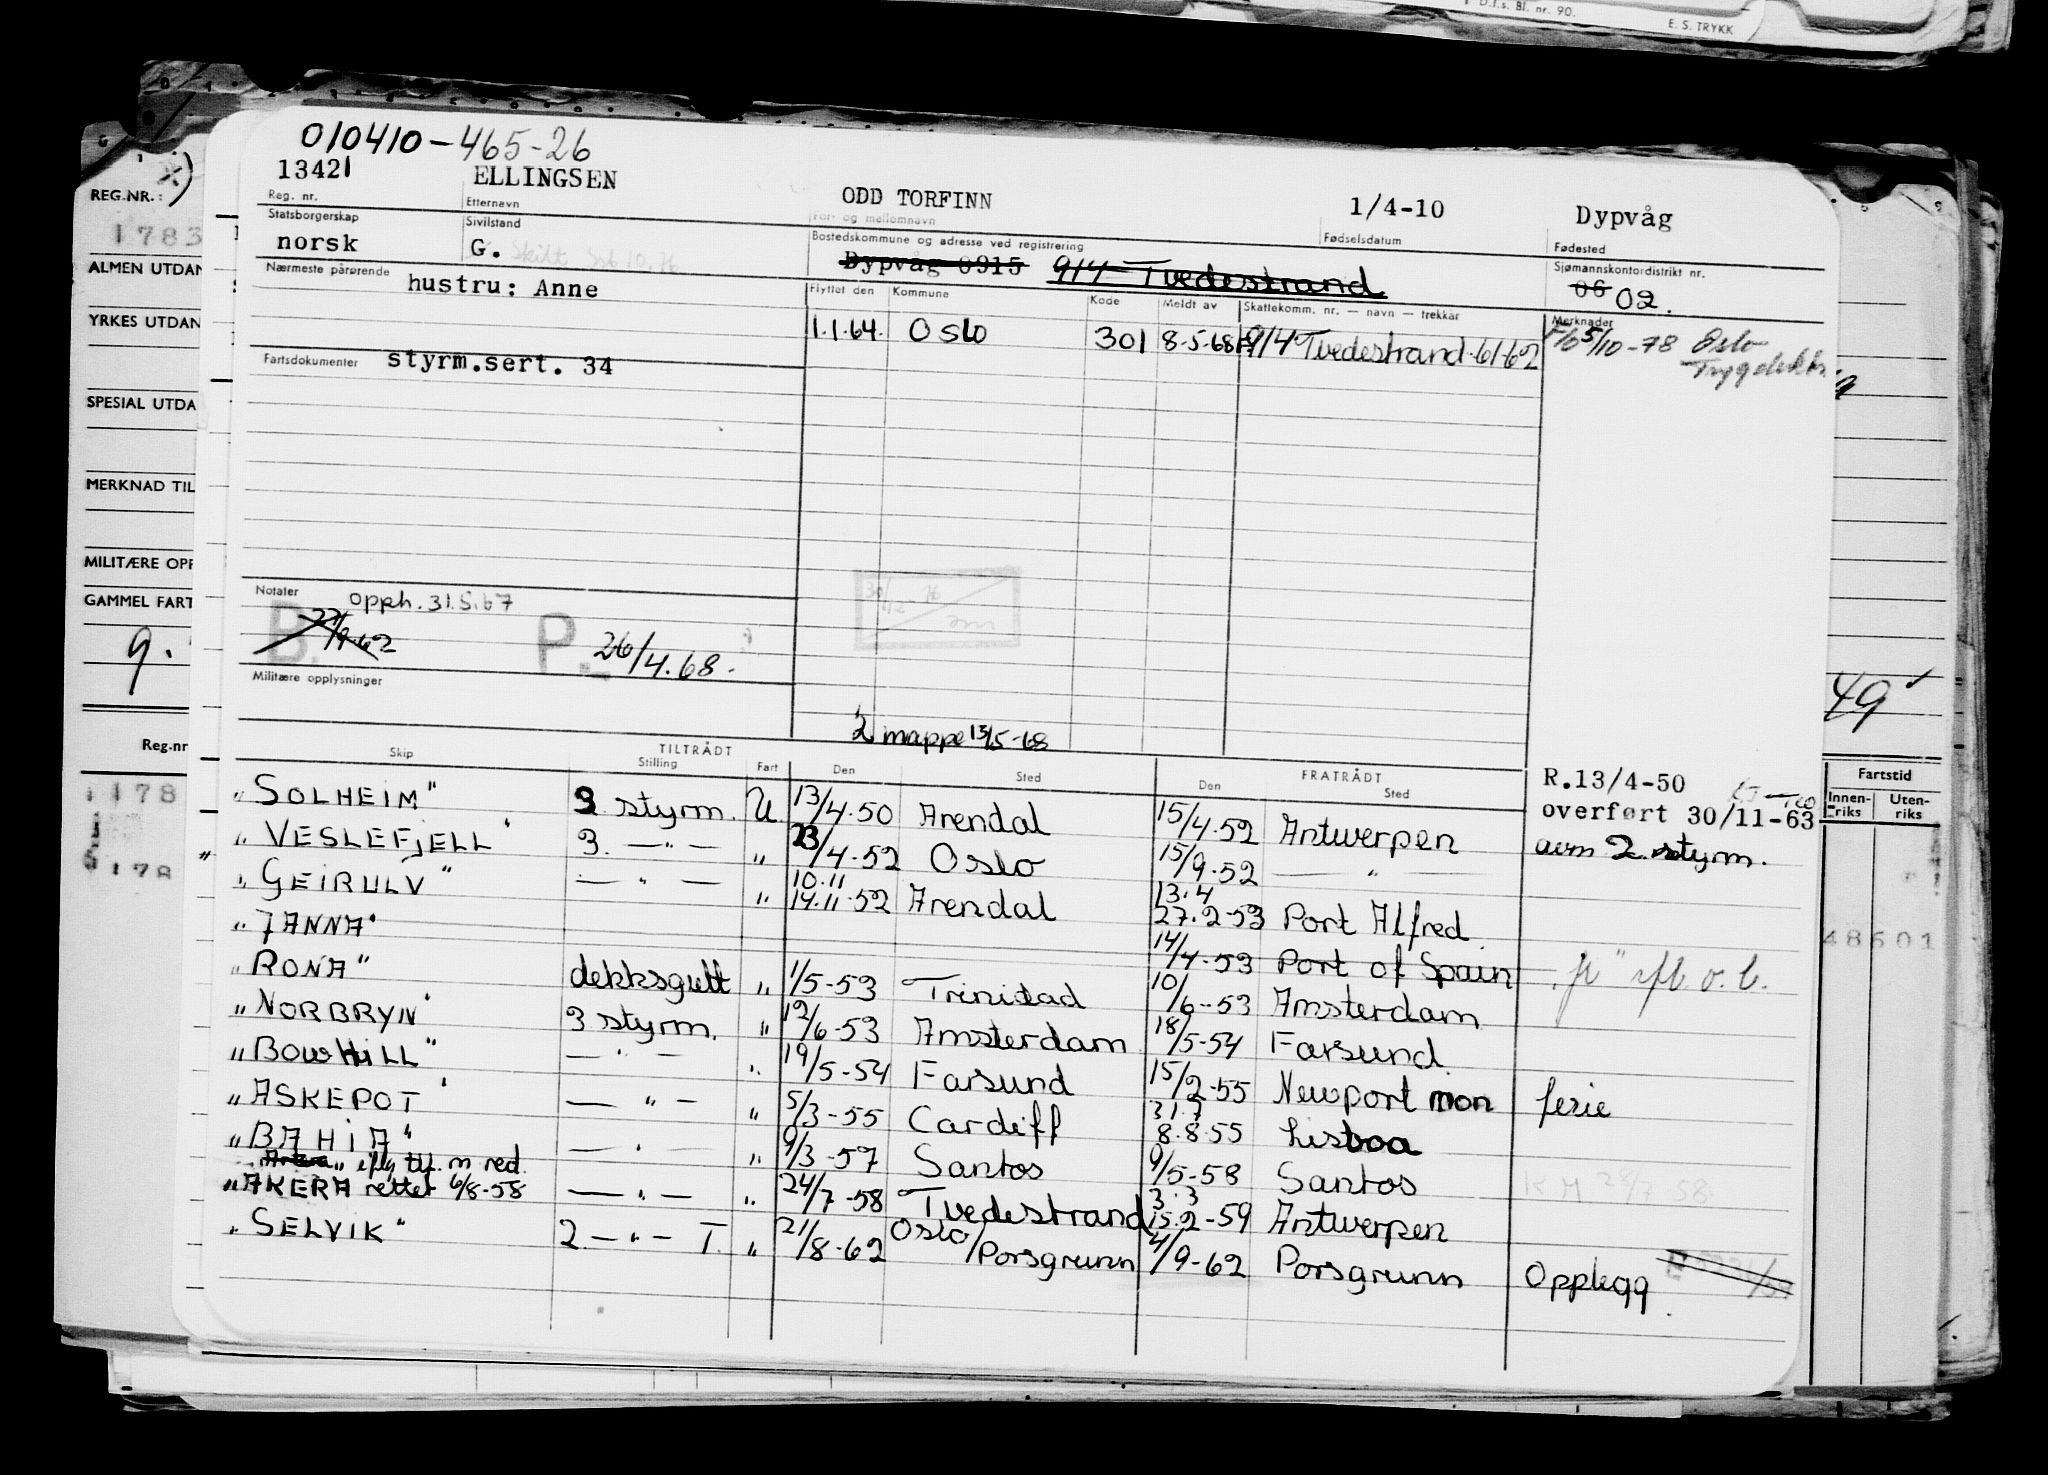 D.f.s. Bl. nr. 90.
E. S. TRYKK
010410-465-26
13421 ELLINGSEN ODD TORFINN 1/4-10 Dypvåg
Reg. nr. Etternavn For- og mellomnavn Fødselsdatum Fødested
Statsborgerskap Sivilstand Bostedskommune og adresse ved registrering Sjømannskontordistrikt nr.
norsk G. Skilt Dypvåg 0915 914 Tvedestrand 06 02.
Nærmeste pårørende hustru: Anne
Flyttet den Kommune Kode Meldt av Skattekomm. nr. — navn — trekkår Merknader
1.1.64. Oslo 301 8.5.68 914 Tvedestrand 61-62 5/10-78 Oslo
Fartsdokumenter styrm.sert. 34
Notater opph. 31.5.67
B. 22/9.62 P. 26/4.68.
Militære opplysninger
2 mappe 13/5-68
TILTRÅDT FRATRÅDT
Skip Stilling Fart Den Sted Den Sted
R.13/4-50
overført 30/11-63
"SOLHEIM" 3 styrm. U 13/4.50 Arendal 15/4.52 Antwerpen avm 2. styrm.
"VESLEFJELL" 3. —"— " 23/4.52 Oslo 15/9.52 — " —
"GEIRULV" — " — " 10.11 14.11.52 Arendal 13.4 27.2-53 Port Alfred
"JANNA" 14/4.53 Port of Spain
"RONA" dekksgutt " 1/5-53 Trinidad 10/6-53 Amsterdam
"NORBRYN" 3 styrm. " 12/6-53 Amsterdam 18/5-54 Farsund
"BOW HILL" — " — " 19/5-54 Farsund 15/2-55 Newport mon ferie
"ASKEPOT" — " — " 5/3-55 Cardiff 31.7 8.8.55 Lisboa
"BAHIA" — " — " 9/3-57 Santos 9/5-58 Santos
eflg tlf. m red.
"AKERA rettet 6/8-58 — " — " 24/7-58 Tvedestrand 3.3 15.2-59 Antwerpen
"SELVIK" 2 — " — T. " 21/8-62 Oslo/Porsgrunn 4/9-62 Porsgrunn Opplegg.
REG.NR.: x)
1783
ALMEN UTDAN
YRKES UTDAN
SPESIAL UTDA
MERKNAD TIL
MILITÆRE OPP
GAMMEL FART
9.
Reg.nr
49
Fartstid
Innen-riks Uten-riks
48601